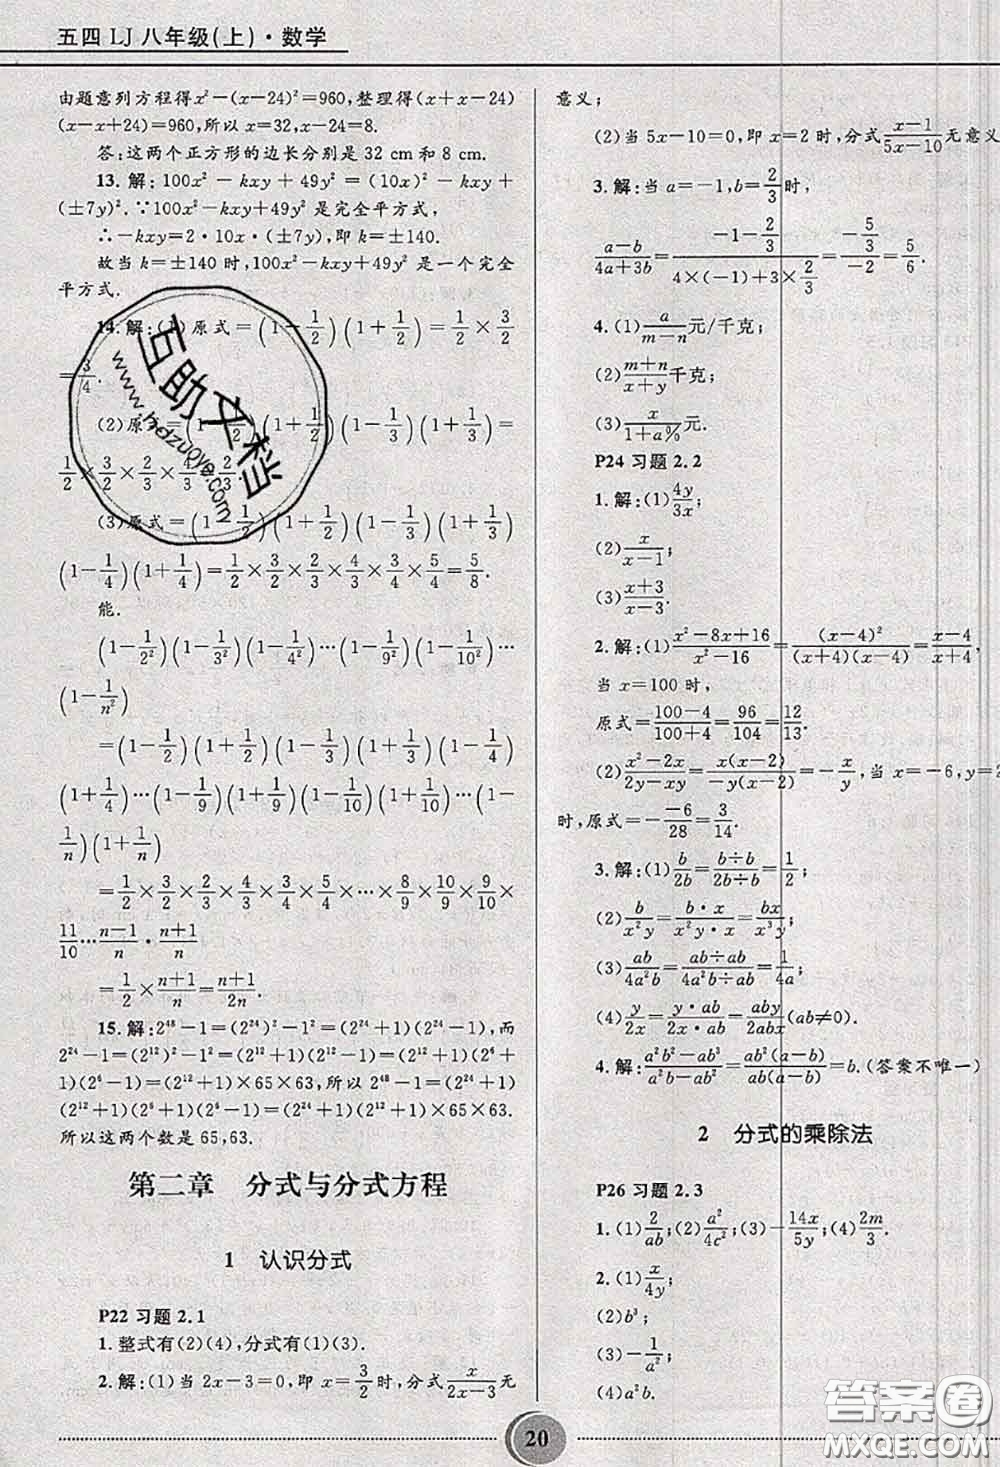 五四 LJ 八年级(上)·数学
由题意列方程得x²-(x-24)²=960,整理得(x+x-24)
(x-x+24)=960,所以 x=32,x-24=8.
答:这两个正方形的边长分别是 32 cm 和 8 cm.
13. 解:100x²-kxy+49y²=(10x)²-kxy+
(±7y)².∵100x²-kxy+49y² 是完全平方式,
∴-kxy=2·10x·(±7y),即 k=±140.
故当 k=±140 时,100x²-kxy+49y² 是一个完全
平方式.
14. 解:(1)原式=(1-1/2)(1+1/2)=1/2×3/2
=3/4.
(2)原式=(1-1/2)(1+1/2)(1-1/3)(1+1/3)=
1/2×3/2×2/3×4/3=2/3.
(3)原式=(1-1/2)(1+1/2)(1-1/3)(1+1/3)
(1-1/4)(1+1/4)=1/2×3/2×2/3×4/3×3/4×5/4=5/8.
能.
(1-1/2²)(1-1/3²)(1-1/4²)…(1-1/9²)(1-1/10²)…
(1-1/n²)
=(1-1/2)(1+1/2)(1-1/3)(1+1/3)(1-1/4)
(1+1/4)…(1-1/9)(1+1/9)(1-1/10)(1+1/10)…(1-
1/n)(1+1/n)
=1/2×3/2×2/3×4/3×3/4×5/4×…×8/9×10/9×9/10×
11/10…(n-1)/n·(n+1)/n
=1/2×(n+1)/n=(n+1)/2n.
15. 解:2⁴⁸-1=(2²⁴)²-1²=(2²⁴+1)(2²⁴-1),而
2²⁴-1=(2¹²)²-1²=(2¹²+1)(2¹²-1)=(2¹²+1)(2⁶+
1)(2⁶-1)=(2¹²+1)(2⁶+1)×65×63,所以 2⁴⁸-1=(2²⁴+1)
(2¹²+1)(2⁶+1)(2⁶-1)=(2²⁴+1)(2¹²+1)×65×63.
所以这两个数是 65,63.
第二章 分式与分式方程
1 认识分式
P22 习题 2.1
1. 整式有(2)(4),分式有(1)(3).
2. 解:(1)当 2x-3=0,即 x=3/2 时,分式 x/(2x-3) 无
意义;
(2)当 5x-10=0,即 x=2 时,分式 (x-1)/(5x-10) 无意义
3. 解:当 a=-1,b=2/3 时,
(a-b)/(4a+3b)=(-1-2/3)/(4×(-1)+3×2/3)=(-5/3)/(-2)=5/6.
4. (1)a/(m-n)元/千克;
(2)(m+n)/(x+y)千克;
(3)x/(1+a%)元.
P24 习题 2.2
1. 解:(1)4y/3x;
(2)x/(x-1);
(3)(x+3)/(x-3).
2. 解:(1)(x²-8x+16)/(x²-16)=(x-4)²/((x+4)(x-4))=(x-4)/(x+4),
当 x=100 时,
原式=(100-4)/(100+4)=96/104=12/13.
(2)(x²-2x)/(2y-xy)=x(x-2)/(-y(x-2))=-x/y,当 x=-6,y=2
时,原式=-(-6)/28=3/14.
3. 解:(1)b/2b=(b÷b)/(2b÷b)=1/2;
(2)b/x²y=(b·x)/(x²y·x)=bx/x³y;
(3)ab/4a²b=(ab÷ab)/(4a²b÷ab)=1/4a;
(4)y/2x=(y·ab)/(2x·ab)=aby/2abx(ab≠0).
4. 解:(a²b²-ab³)/(a²b-ab²)=ab²(a-b)/(ab(a-b))=b.(答案不唯一)
2 分式的乘除法
P26 习题 2.3
1. (1)2/ab;(2)a²/4c²;(3)-14x/5y;(4)2m/3.
2. (1)x/4y;
(2)b³;
(3)-1/a²;
(4)a²b.
20
互助文档
www.hdzuoye.com
答案圈
MXQE.COM